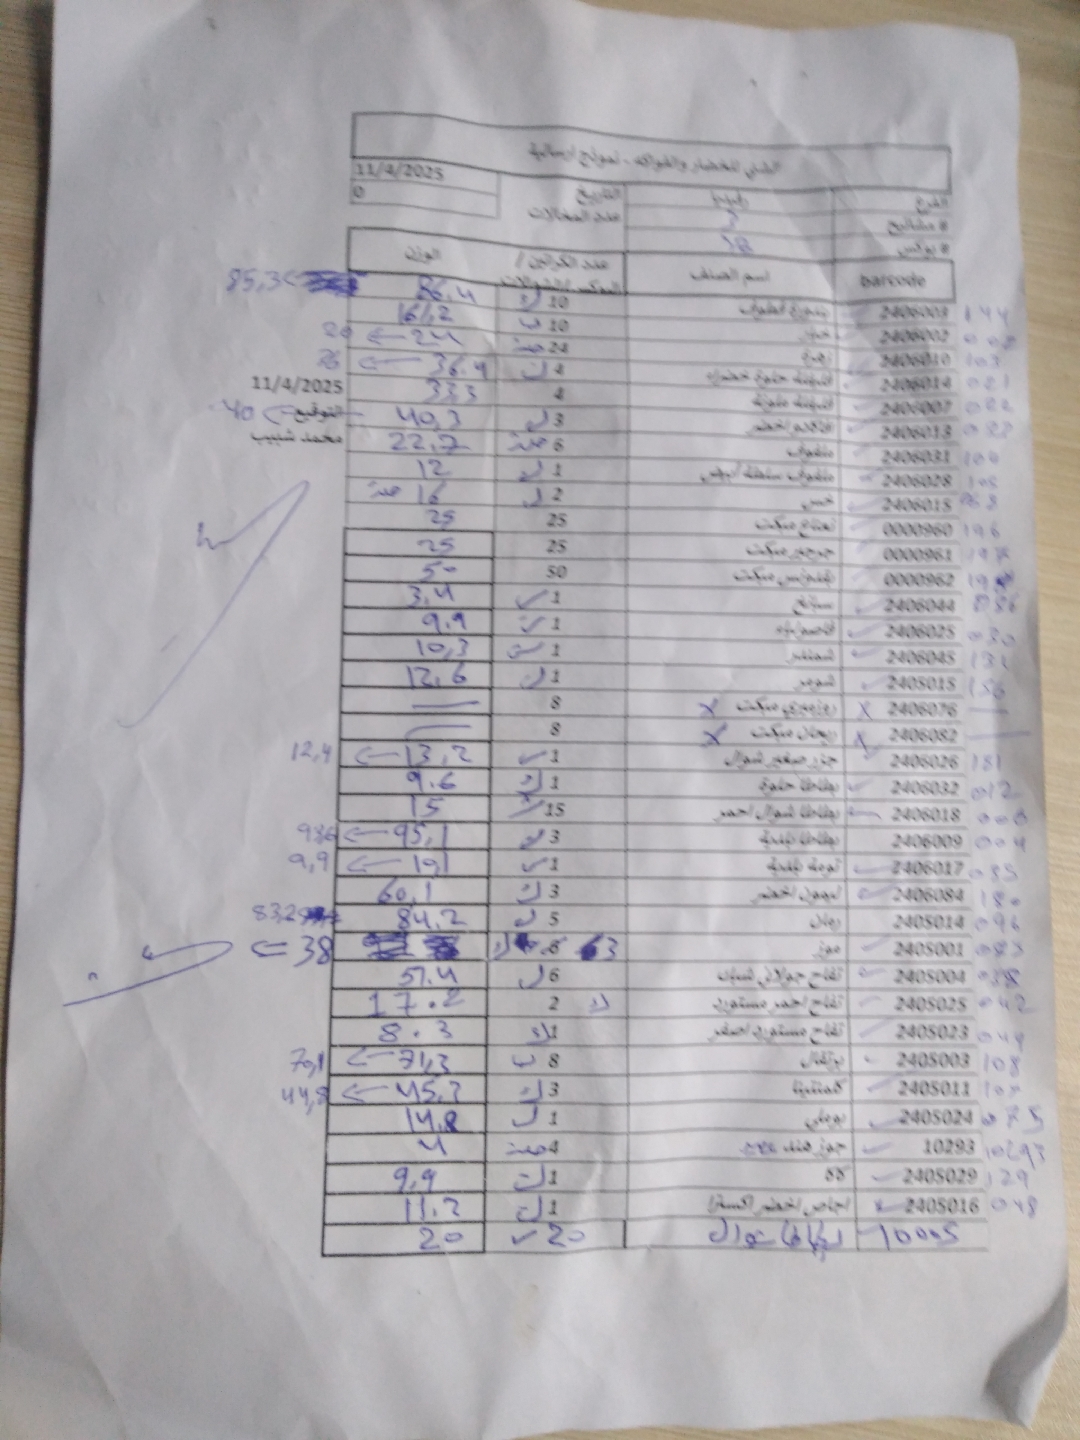 الشني للخضار والفواكه - نموذج ارسالية
الفرع التاريخ 11/4/2025
# مشاتيح 3 عدد المحالات 0
# بوكس 58
barcode اسم الصنف عدد الكراتين / البوكس / الشوالات الوزن
144 2406003 بندورة 10 86.4 85,3
2406002 خيار 10 161,2
103 2406010 زهرة 24 24 20
021 2406014 فليفلة حلوة خضراء 4 36.9 26
022 2406007 فليفلة ملونة 4 333 11/4/2025
2406013 3 40,3 40 التوقيع
104 2406031 ملفوف 6 22,7 محمد شبيب
105 2406028 ملفوف سلطة ابيض 1 12
2406015 خس 2 16 حبة
196 0000960 نعناع مبكت 25 25
197 0000961 جرجير مبكت 25 25
0000962 بقدونس مبكت 50 50
036 2406044 سبانخ 1 3.4
030 2406025 فاصولياء 1 9.9
131 2406045 شمندر 1 10,3
156 2405015 شومر 1 12.6
2406076 x روزميري مبكت x 8
2406082 x ريحان مبكت x 8
181 2406026 جزر صغير شوال 1 13,2 12,4
012 2406032 بطاطا حلوة 1 9.6
2406018 بطاطا شوال احمر 15 15
004 2406009 بطاطا بلدية 3 95,1
085 2406017 ثومة بلدية 1 9,9
180 2406084 ليمون اخضر 3 60,1
096 2405014 رمان 5 84.2 83,2
083 2405001 موز 3 38
038 2405004 تفاح جولاني شباب 6 51.4
042 2405025 تفاح احمر مستورد 2 17.2
044 2405023 تفاح مستورد اصفر 1 8.3
108 2405003 برتقال 8 71,3 70,1
107 2405011 كلمنتينا 3 45.3 44,8
075 2405024 بوملي 1 14.8
10293 10293 جوز هند 4 حبة 4
129 2405029 كاكا 1 9,9
048 2405016 اجاص اخضر اكسترا 1 11.2
10005 بطاطا شوال 20 20